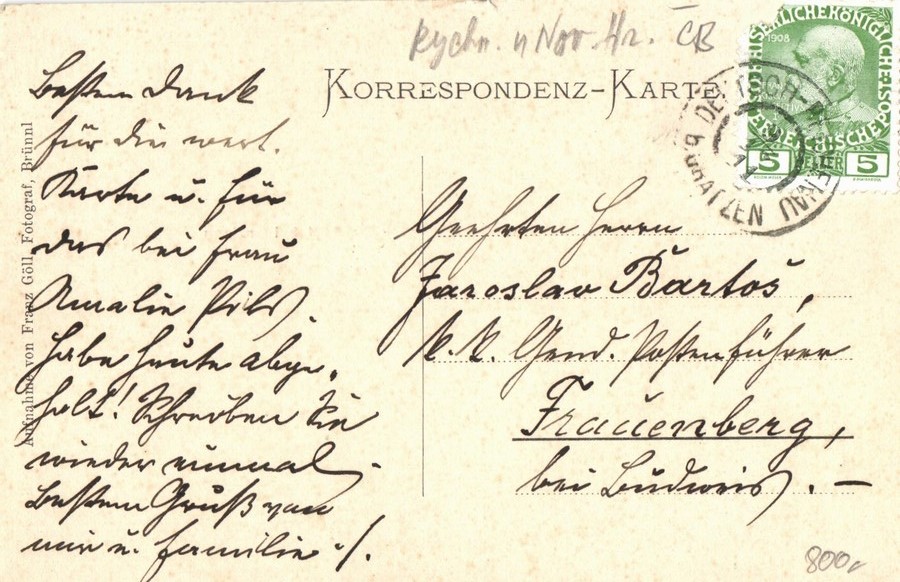 Rychn. u Nov. Hr. ČB
KORRESPONDENZ-KARTE.
1908
5 HELLER 5
DEUTSCH-REICHENAU
GRATZEN
Aufnahme von Franz Göll, Fotograf, Brünnl
Besten Dank
für die wert.
Karte u. für
das bei Frau
Amalie Pils.
Habe heute abge-
holt! Schreiben Sie
wieder einmal.
Besten Gruß von
mir u. Familie ./.
Geehrten Herrn
Jaroslav Bartoš,
k. k. Gend. Postenführer
Frauenberg,
bei Budweis. —
800,-